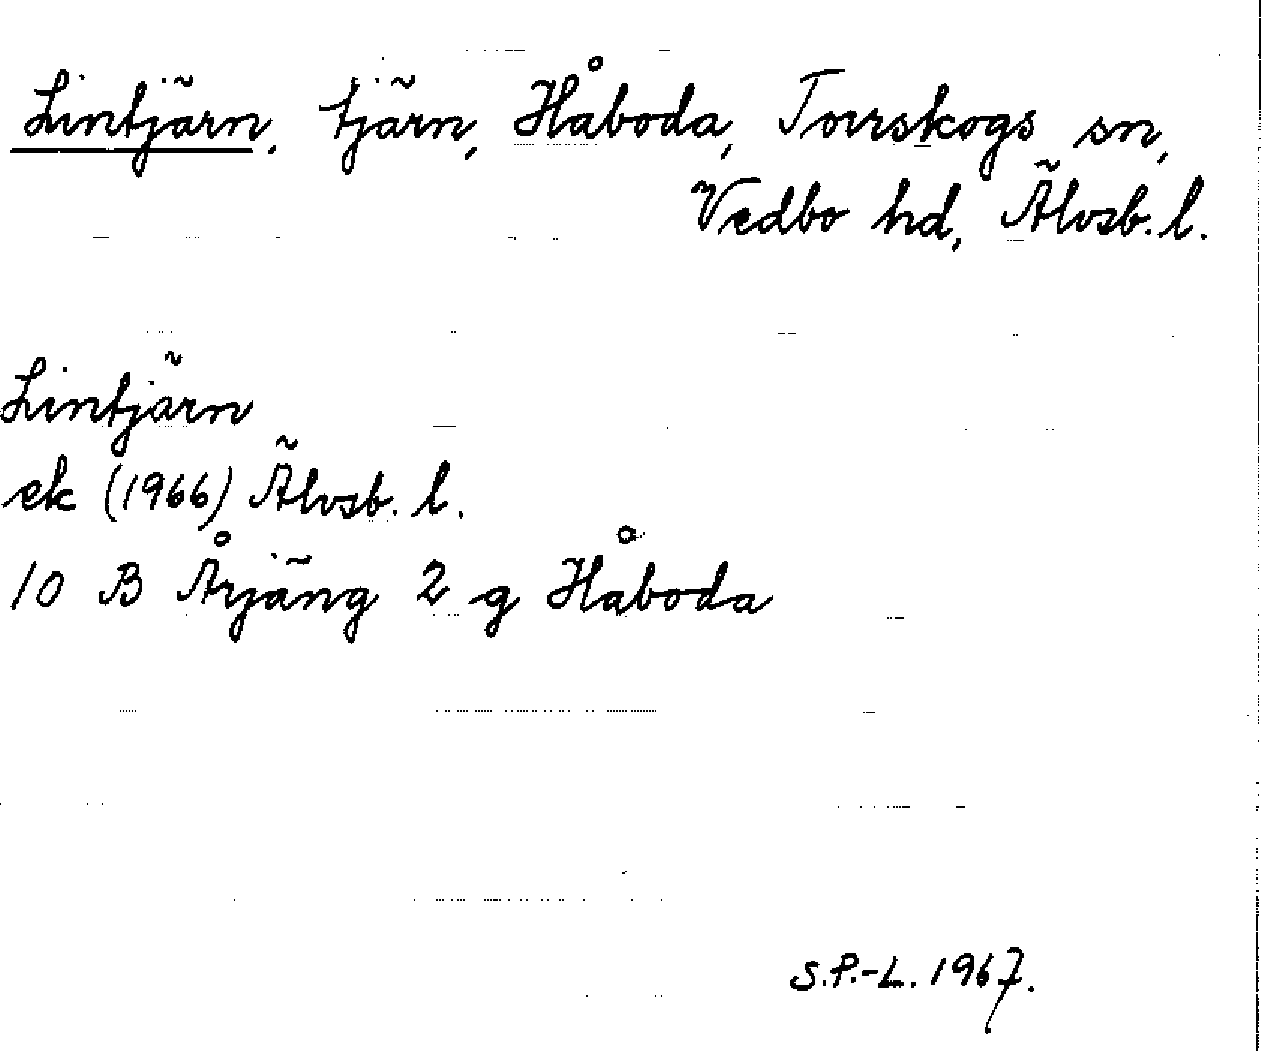 Lintjärn, tjärn, Håboda, Torrskogs sn,
Vedbo hd, Älvsb. l.
Lintjärn
ek (1966) Älvsb. l.
10 B Årjäng 2 g Håboda
S.P.-L. 1967.